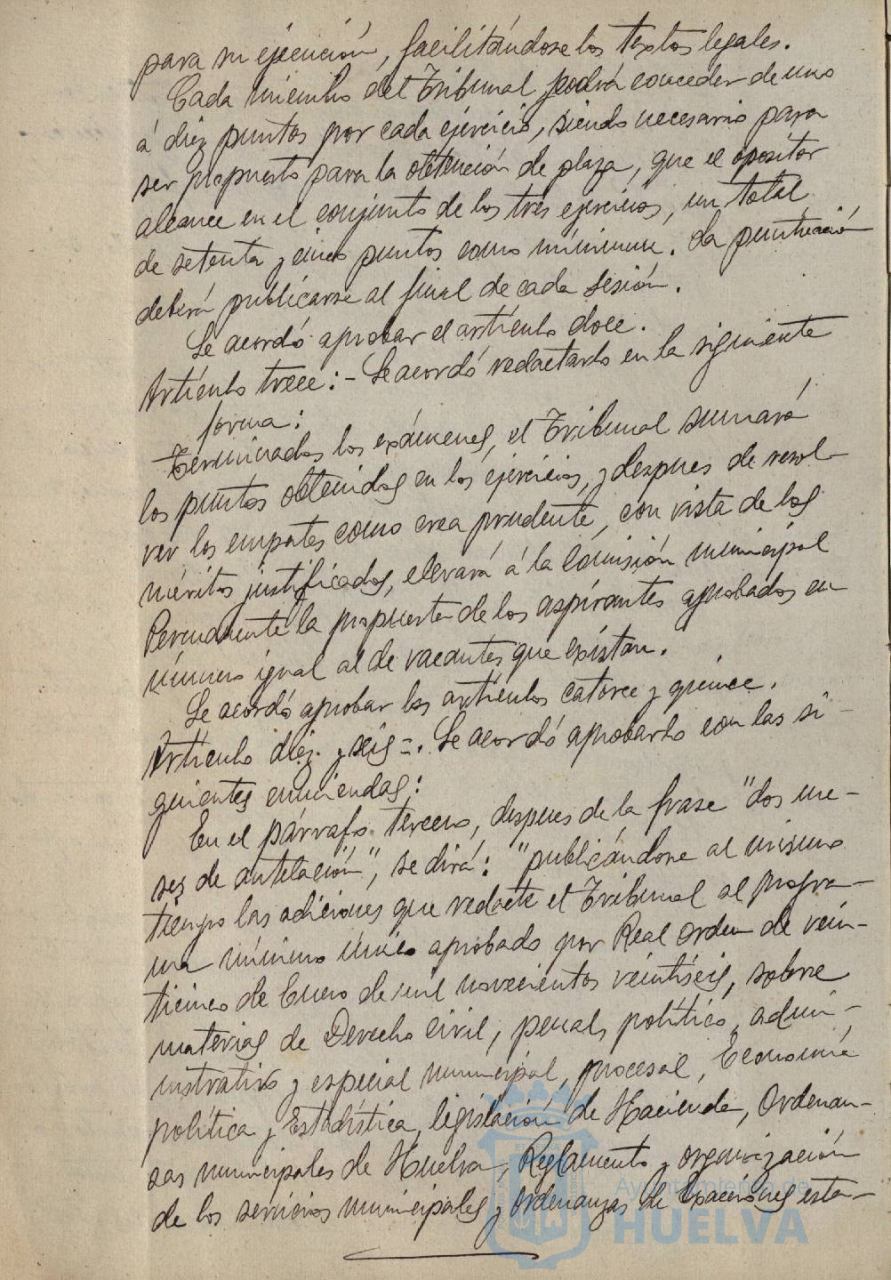 para su ejecución, facilitándose los textos legales.
Cada miembro del Tribunal podrá conceder de uno
á diez puntos por cada ejercicio, siendo necesario para
ser propuesto para la obtención de plaza, que el opositor
alcance en el conjunto de los tres ejercicios, un total
de setenta y cinco puntos como mínimum. La puntuación
deberá publicarse al final de cada sesión.
Se acordó aprobar el artículo doce.
Artículo trece: - Se acordó redactarlo en la siguiente
forma:
Terminados los exámenes, el Tribunal sumará
los puntos obtenidos en los ejercicios, y despues de resol-
ver los empates como crea prudente, con vista de los
méritos justificados, elevará á la Comisión municipal
Permanente la propuesta de los aspirantes aprobados en
número igual al de vacantes que existan.
Se acordó aprobar los artículos catorce y quince.
Artículo diez y seis =. Se acordó aprobarlo con las si-
guientes enmiendas:
En el párrafo tercero, despues de la frase "dos me-
ses de antelación", se dirá: "publicándose al mismo
tiempo las adiciones que redacte el Tribunal al progra-
ma mínimo único aprobado por Real orden de vein-
ticinco de Enero de mil novecientos veintiseis, sobre
materias de Derecho civil, penal, político, admi-
nistrativo y especial municipal, procesal, Economía
política y Estadística, legislación de Hacienda, Ordenan-
zas municipales de Huelva, Reglamento y organización
de los servicios municipales y ordenanzas de Exacciones esta-
Ayuntamiento de
HUELVA